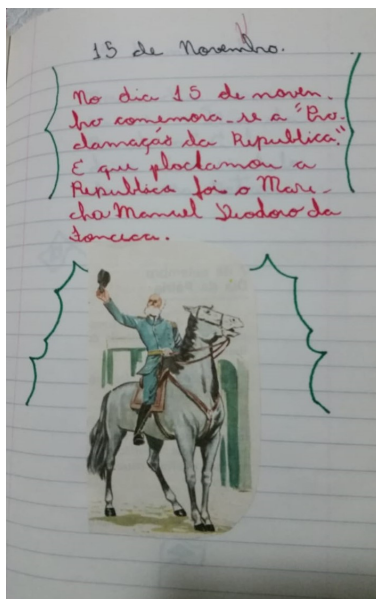 15 de Novembro.
No dia 15 de novem-
bro comemora-se a "Pro-
clamação da Republica."
E que ploclamou a
Republica foi o Mare-
cha Manuel Deodoro da
Fonceca.